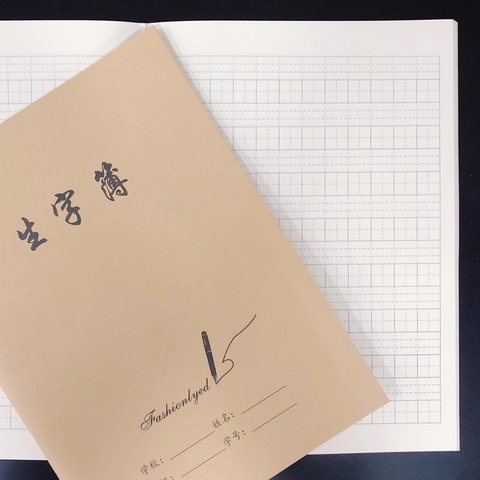 生字簿
Fashionlyed
学校： 姓名：
学号：